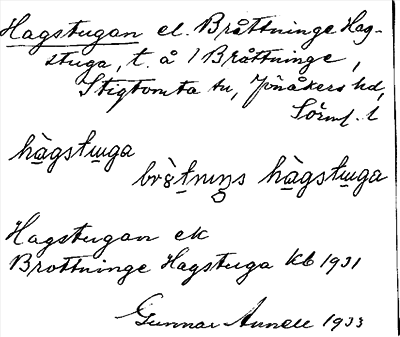 Hagstugan el. Bråttninge Hag-
stuga, t. å 1 Bråttninge,
Stigtomta sn, Jönåkers hd,
Sörml. l
hàgstuga
hàgstuga
Hagstugan ek
Brottninge Hagstuga Kb 1931
Gunnar 1933